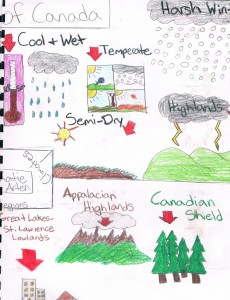 of Canada
Harsh Win
Cool + Wet
Temperate
Highlands
Semi-Dry
Regions
Great Lakes-
St. Lawrence
Lowlands
Appalacian
Highlands
Canadian
Shield